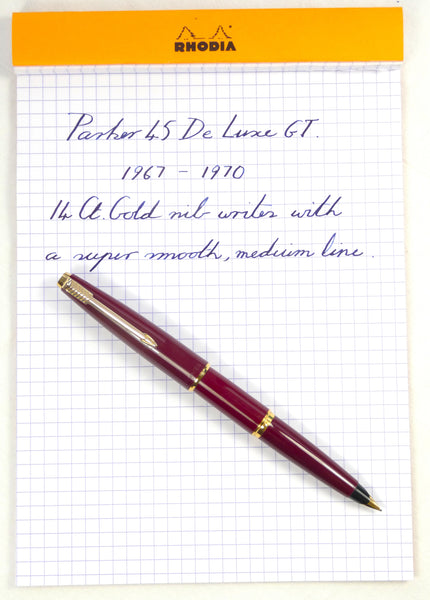 RHODIA
Parker 45 De Luxe GT.
1967 - 1970
14 Ct. Gold nib writes with
a super smooth, medium line.